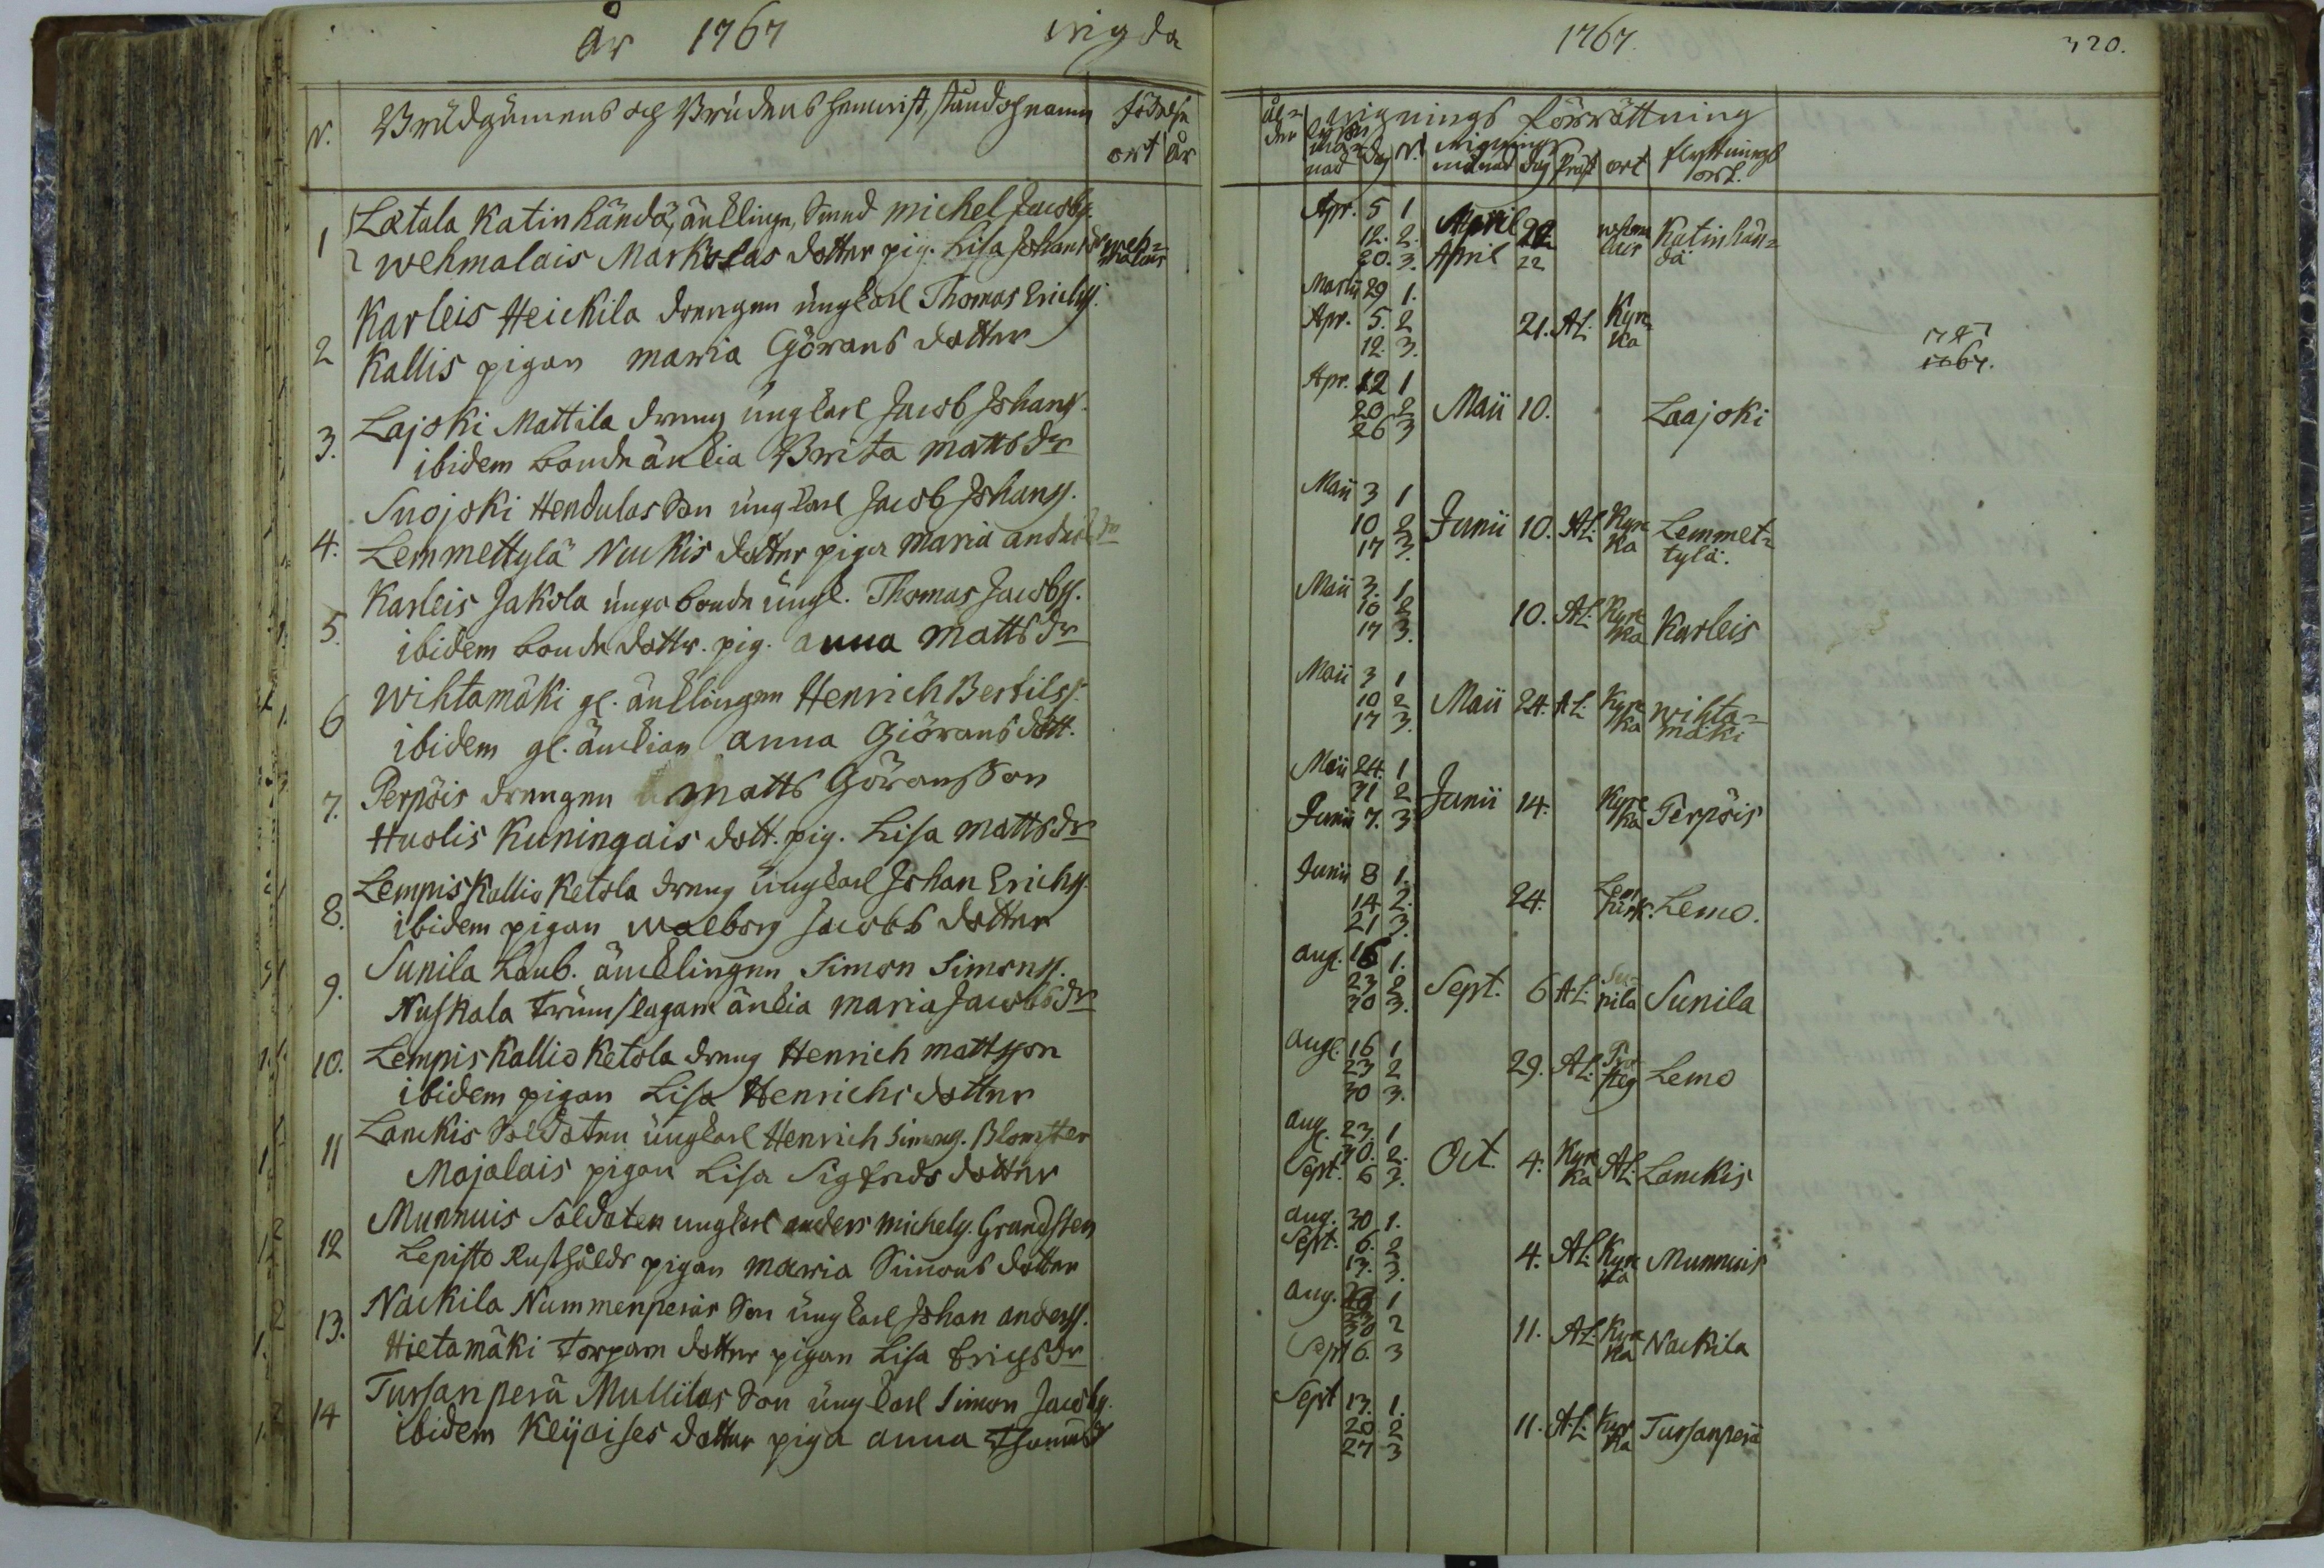 år 1767 wigda
N. Brudgumens och Brudens hemvist, stånd och namn födelse
ort år
1 Latala Katinhändä, änklingen, Smed michel Jacobss.
wehmalais Markolas dotter pig. Lisa Johansdr weh=
malais
2 Karleis Heickila drengen ungkarl Thomas Erichss.
Kallis pigan maria Görans dotter
3. Lajoki Mattila dreng ungkarl Jacob Johanss.
ibidem bonde änkia Brita mattsdr
4. Suojoki Hendulas Son ungkarl Jacob Johanss.
Lemmettylä Nuckis dotter piga maria andersdr
5. Karleis Jakola unga bonde ungk. Thomas Jacobss.
ibidem bonde dottr. pig. anna mattsdr
6 wihtamäki gl. änklingen Henrich Bertilss.
ibidem gl. änckian anna Giörans dott.
7. Perpöis drengen matts Göransson
Huolis Kuningais dott. pig. Lisa mattsdr
8. Lempis Kallio Ketola dreng ungkarl Johan Erichss.
ibidem pigan walborg Jacobs dotter
9. Sunila Laub. äncklingen Simon Simonss.
Nuskala Trumslagare änkia maria Jacobsdr
10. Lempis Kallio Ketola dreng Henrich mattsson
ibidem pigan Lisa Henrichs dotter
11 Lanckis Soldaten ungkarl Henrich Simonss. Blomster
Majalais pigan Lisa Sigfrids dotter
12 Munnuis Soldaten ungkarl anders michelss. Grandsten
Lepisto Rusthålds pigan maria Simons dotter
13. Nackila Nummenperäs Son ungkarl Johan anderss.
Hietamäki Torpare dotter pigan Lisa Erichsdr
14 Tursanperä Mullilas Son ungkarl Simon Jacobss.
ibidem Keijoises dotter piga anna Thomasdr
1767. 320.
ål=
der wignings förrättning
lysn.
må=
nad dag N. wignings
månad dag Präst ort flyttnings
ort.
Apr. 5 1 April 22 wehma
lais Katinhän=
dä
12. 2.
20. 3. April 22
Martii 29 1.
Apr. 5. 2 21. AL. Kyr=
ka
12. 3.
1767.
Apr. 12 1
20 2 Maii 10. Laajoki
26 3
Maii 3 1
10 2 Junii 10. AL. Kyr
ka Lemmet=
tylä.
17 3.
Maii 3. 1.
10 2 10. AL. Kyr
ka Karleis
17 3.
Maii 3 1
10 2 Maii 24. AL. Kyr
ka wihta=
mäki
17 3.
Maii 24. 1
31 2 Junii 14. Kyr
ka Perpöis
Junii 7. 3
Junii 8 1.
14 2. 24. Lem.
kirk. Lemo.
21 3.
aug. 16 1.
23 2 Sept. 6 AL. Su=
nila Sunila
30 3.
aug. 16 1
23 2 29. AL. Lemo
30 3.
aug. 23. 1
30. 2. Oct. 4. Kyr
ka AL. Lanckis
Sept. 6 3.
aug. 30 1.
Sept. 6. 2 4. AL. Kyr
ka Munnuis
13. 3.
aug. 23 1
30 2 11. AL. Kyr
ka Nackila
Sept 6. 3
Sept 13. 1.
20 2 11. AL. Kyr
ka Tursanperä
27 3